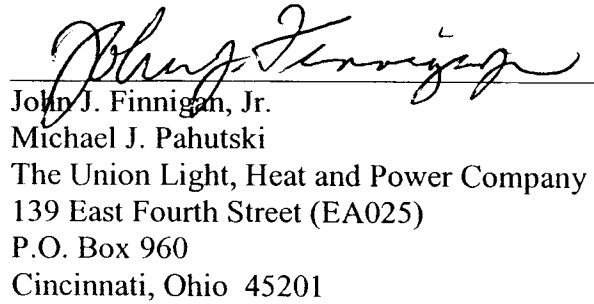 John J. Finnigan
John J. Finnigan, Jr.
Michael J. Pahutski
The Union Light, Heat and Power Company
139 East Fourth Street (EA025)
P.O. Box 960
Cincinnati, Ohio 45201